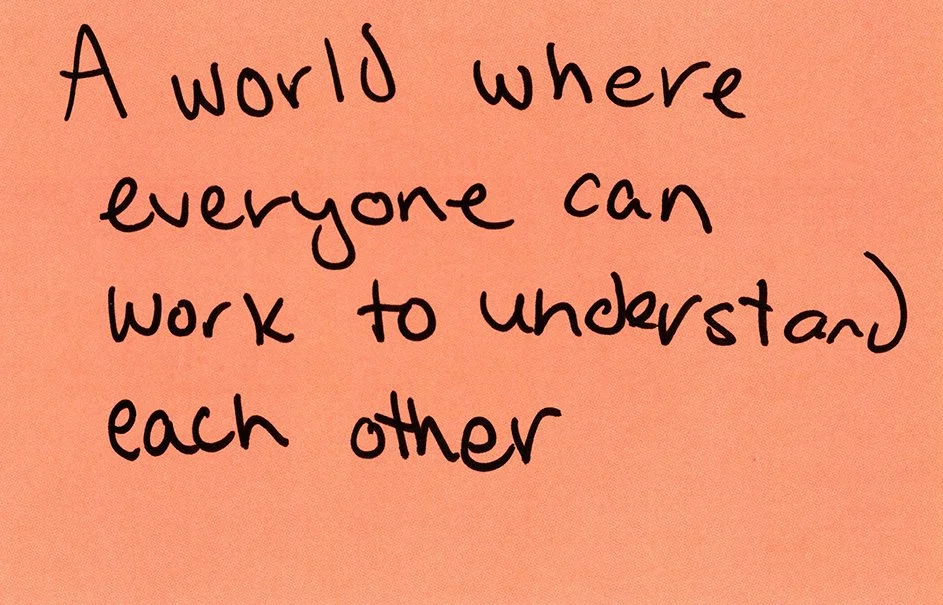 A world where
everyone can
work to understand
each other